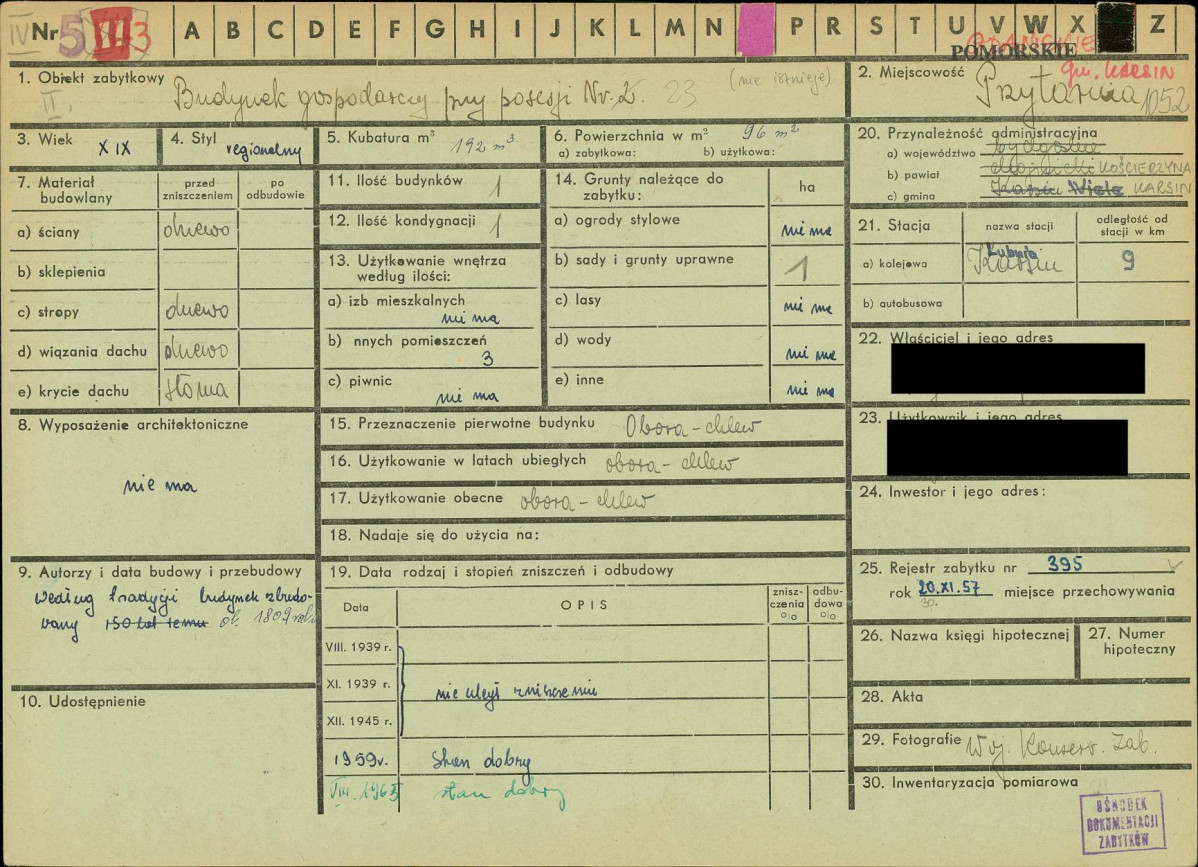 IV Nr 5 III 3 A B C D E F G H I J K L M N P R S T U V W X Z
POMORSKIE
1. Obiekt zabytkowy
II.
Budynek gospodarczy przy posesji Nr. 2. 23
(nie istnieje)
2. Miejscowość
gm. KARSIN
Przytarnia 1052
3. Wiek XIX
4. Styl regionalny
5. Kubatura m³ 192 m³
6. Powierzchnia w m² 96 m²
a) zabytkowa: b) użytkowa:
20. Przynależność administracyjna
a) województwo bydgoskie
b) powiat chojnicki KOŚCIERZYNA
c) gmina Karsin Wiele KARSIN
7. Materiał budowlany
przed zniszczeniem
po odbudowie
a) ściany drzewo
b) sklepienia
c) stropy drzewo
d) wiązania dachu drzewo
e) krycie dachu słoma
11. Ilość budynków 1
12. Ilość kondygnacji 1
13. Użytkowanie wnętrza
według ilości:
a) izb mieszkalnych
nie ma
b) nnych pomieszczeń
3
c) piwnic
nie ma
14. Grunty należące do
zabytku:
ha
a) ogrody stylowe nie ma
b) sady i grunty uprawne 1
c) lasy nie ma
d) wody nie ma
e) inne nie ma
21. Stacja
nazwa stacji
odległość od
stacji w km
a) kolejowa Karsin 9
b) autobusowa
22. Właściciel i jego adres
23. Użytkownik i jego adres
24. Inwestor i jego adres:
8. Wyposażenie architektoniczne
nie ma
15. Przeznaczenie pierwotne budynku Obora-chlew
16. Użytkowanie w latach ubiegłych obora-chlew
17. Użytkowanie obecne obora-chlew
18. Nadaje się do użycia na:
9. Autorzy i data budowy i przebudowy
według tradycji budynek zbudo-
wany 150 lat temu ok. 1809 roku
10. Udostępnienie
19. Data rodzaj i stopień zniszczeń i odbudowy
Data
OPIS
znisz-
czenia
%
odbu-
dowa
%
VIII. 1939 r.
XI. 1939 r.
nie uległ zniszczeniu
XII. 1945 r.
1959r. Stan dobry
VIII. 1963 stan dobry
25. Rejestr zabytku nr 395
rok 20.XI.57 miejsce przechowywania
30.
26. Nazwa księgi hipotecznej
27. Numer
hipoteczny
28. Akta
29. Fotografie Woj. Konserw. Zab.
30. Inwentaryzacja pomiarowa
OŚRODEK
DOKUMENTACJI
ZABYTKÓW